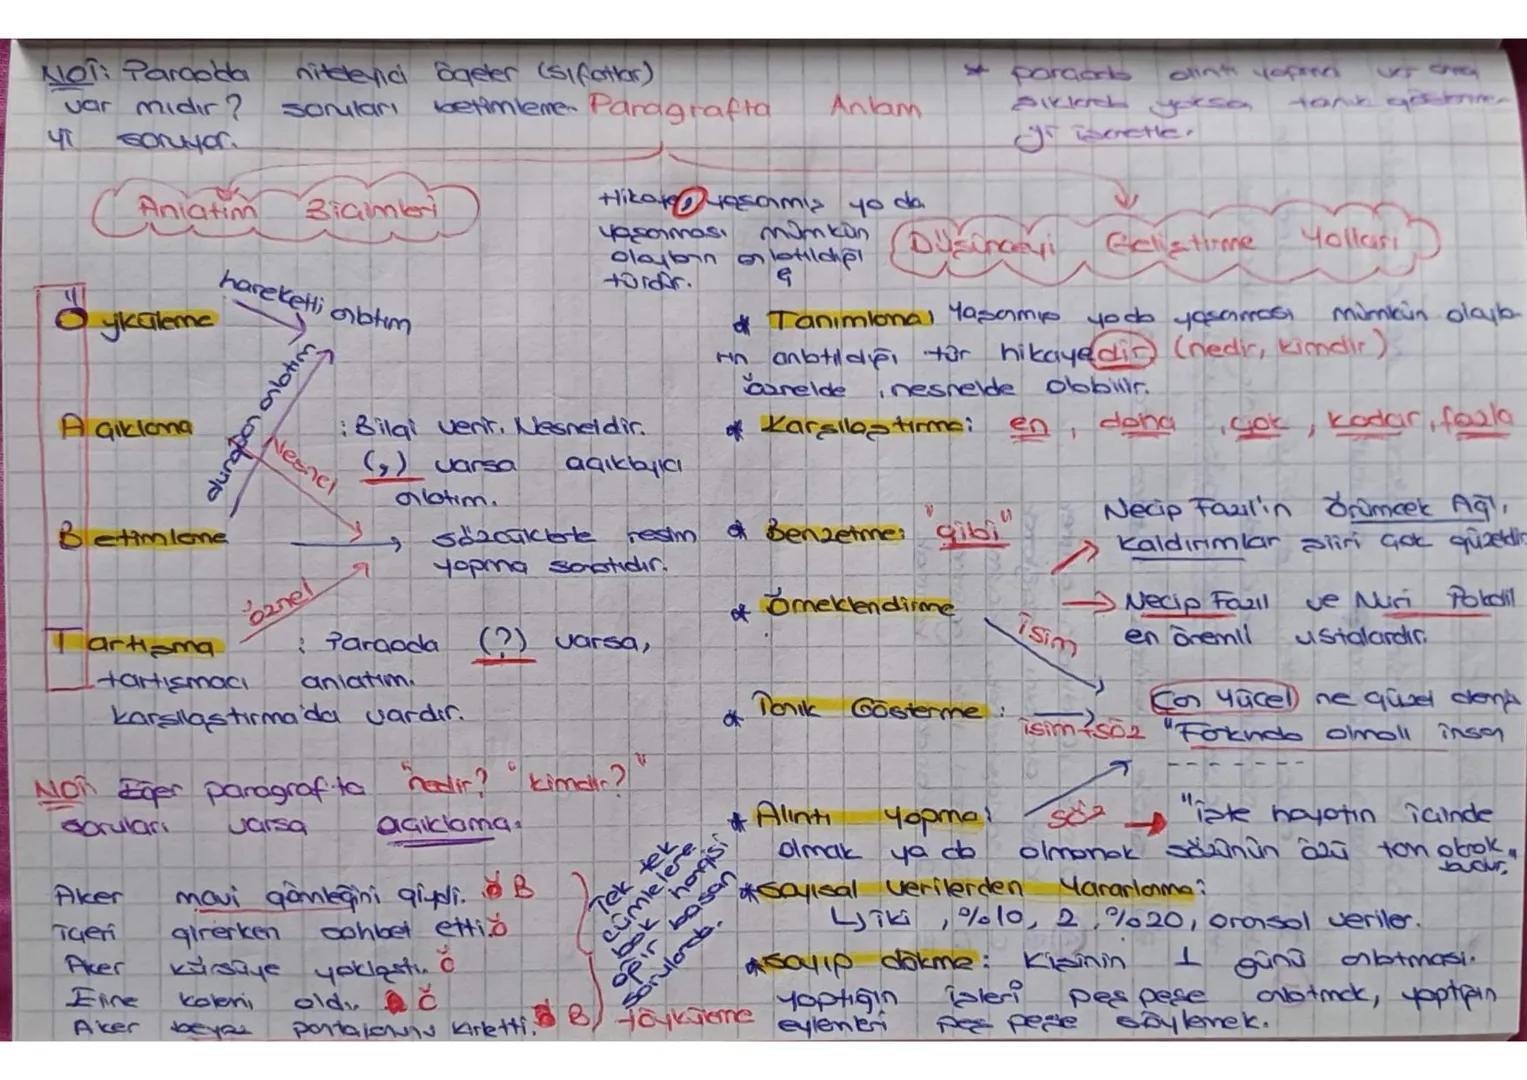 NOT: Paragda niteleyici ögeler (sıfatlar)
var mıdır? soruları betimleme-
yi soruyor.
Paragrafta Anlam
* paragda alıntı yapma
şıklarda yoksa tanık gösterme-
yi işaretle.
Anlatım Biçimleri
Hikaye, yaşanmış ya da
yaşanması mümkün
olayların anlatıldığı
türdür.
Düşünceyi Geliştirme Yolları
hareketli anlatım
Öyküleme
durağan anlatım
Açıklama : Bilgi verir. Nesneldir.
(,) varsa açıklayıcı
anlatım.
Nesnel
Betimleme → sözcüklerle resim
yapma sanatıdır.
öznel
Tartışma : Paragda (?) varsa,
tartışmacı anlatım.
Karşılaştırma'da vardır.
NOT: Eğer paragrafta "nedir?" "kimdir?"
soruları varsa açıklama.
Aker mavi gömleğini giydi. B
İçeri girerken sohbet etti. Ö
Aker kürsüye yaklaştı. Ö
Eline kalemi aldı. Ö
Aker beyaz pantalonunu kirletti. B
Tek tek
cümlelere
bak hangisi
ağır basan
sorularda.
→ öyküleme
* Tanımlama, Yaşanmış yada yaşanması mümkün olayla-
rın anlatıldığı tür hikayedir (nedir, kimdir)
öznelde, nesnelde olabilir.
* Karşılaştırma: en, daha, çok, kadar, fazla
* Benzetme: "gibi"
Necip Fazıl'ın Örümcek Ağı,
Kaldırımlar şiiri çok güzeldir
* Örneklendirme
isim
→ Necip Fazıl ve Nuri Pakdil
en önemli ustalardır.
* Tanık Gösterme: → isim+söz
Can Yücel ne güzel demiş
"Farkında olmalı insan
* Alıntı yapma: söz → "işte hayatın içinde
olmak ya da olmamak sözünün özü tam olarak
budur.
* Sayısal verilerden Yararlanma:
↳ iki, %10, 2, %20, oransal veriler.
* Sayıp dökme: Kişinin 1 günü anlatması.
yaptığın işleri peş peşe anlatmak, yaptığın
eylemleri peş peşe söylemek.